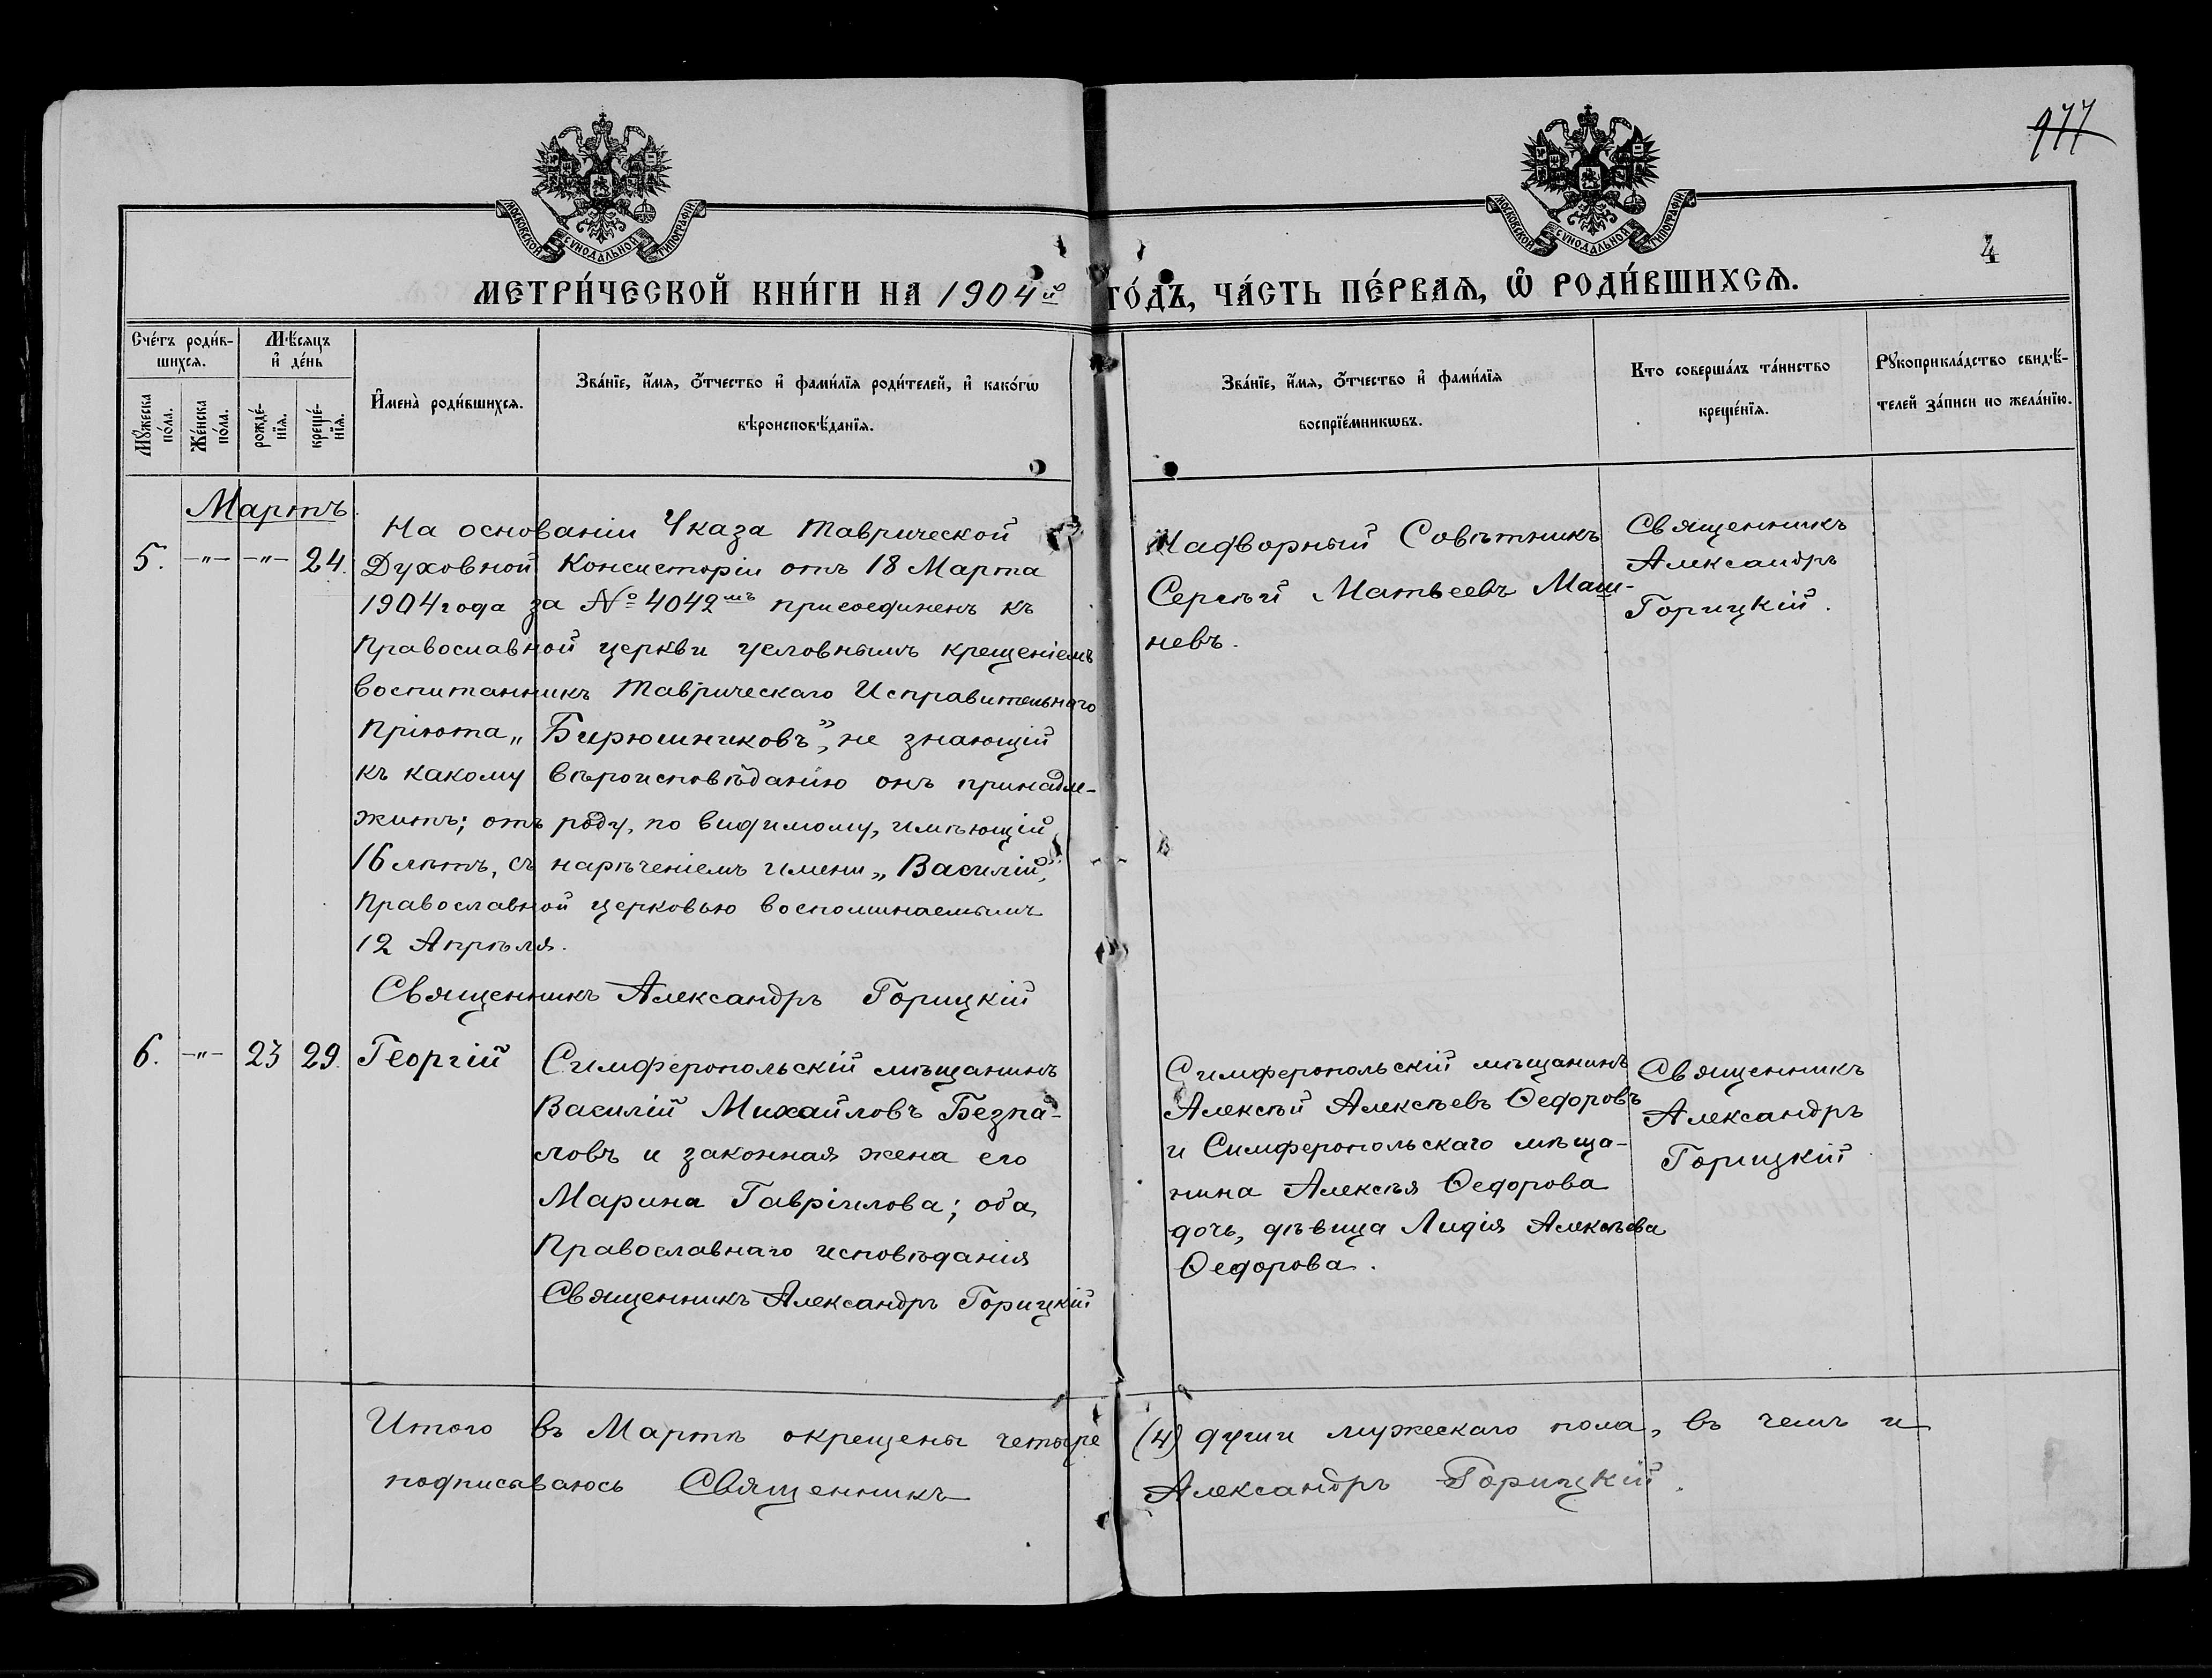 977
МОСКОВСКОЙ СѴНОДАЛЬНОЙ ТИПОГРАФІИ
МОСКОВСКОЙ СѴНОДАЛЬНОЙ ТИПОГРАФІИ
4
МЕТРИ́ЧЕСКОЙ КНИ́ГИ НА 1904й ГО́ДЪ, ЧА́СТЬ ПЕ́РВАѦ, Ѽ РОДИ́ВШИХСѦ.
Сче́тъ роди́в-
шихсѧ.
Мѣ́сѧцъ
и҆ де́нь
Мꙋ́жеска по́ла.
Же́нска по́ла.
рожде́-
нїѧ.
креще́-
нїѧ.
И҆мена̀ роди́вшихсѧ.
Зва́нїе, и҆́мѧ, ѻ҆́тчество и҆ фами́лїѧ роди́телей, и҆ како́гѡ
вѣроисповѣ́данїѧ.
Зва́нїе, и҆́мѧ, ѻ҆́тчество и҆ фами́лїѧ
воспрїе́мникѡвъ.
Кто соверша́лъ та́инство
креще́нїѧ.
Рꙋкоприкла́дство свидѣ́-
телей за́писи по жела́нїю.
Мартъ
5. -"- -"- 24.
На основаніи Указа Таврической
Духовной Консисторіи отъ 18 Марта
1904 года за № 4042мъ присоединенъ къ
Православной церкви условнымъ крещеніемъ
воспитанникъ Таврическаго Исправительнаго
Пріюта „Бирюшниковъ”, не знающій
къ какому вѣроисповѣданію онъ принадле-
житъ; отъ роду, по видимому, имѣющій
16 лѣтъ, съ нарѣченіемъ имени „Василій”,
Православной церковью воспоминаемымъ
12 Апрѣля.
Священникъ Александръ Горицкій
Надворный Совѣтникъ
Сергѣй Матвеевъ Маш-
невъ.
Священникъ
Александръ
Горицкій.
6. -"- 23 29. Георгій
Симферопольскій мѣщанинъ
Василій Михайловъ Безпа-
ловъ и законная жена его
Марина Гавріилова; оба
Православнаго исповѣданія
Священникъ Александръ Горицкій
Симферопольскій мѣщанинъ
Алексѣй Алексѣевъ Ѳедоровъ
и Симферопольскаго мѣща-
нина Алексѣя Ѳедорова
дочь, дѣвица Лидія Алексѣева
Ѳедорова.
Священникъ
Александръ
Горицкій
Итого въ Мартѣ окрещены четыре (4) души мужескаго пола, въ чемъ и
подписываюсь Священникъ Александръ Горицкій.